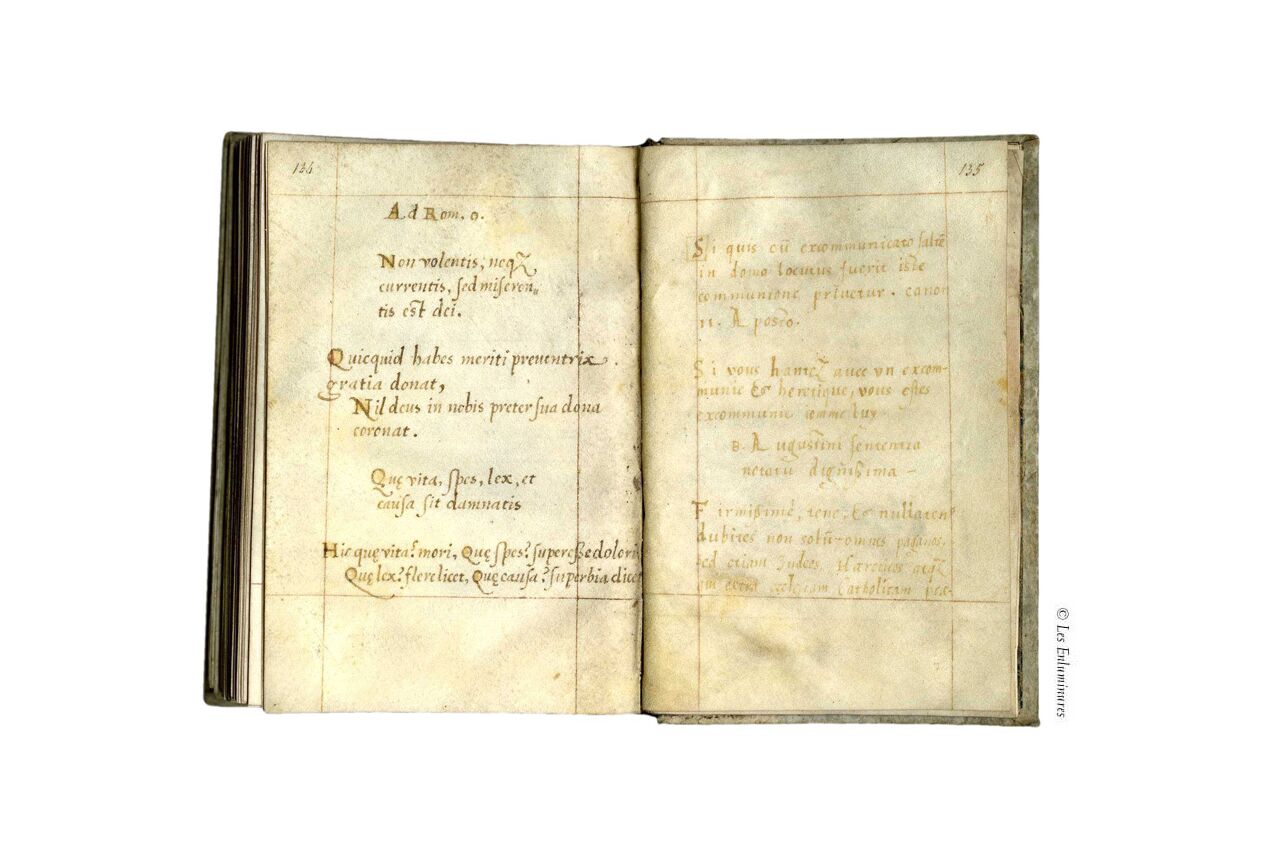 134
Ad Rom. 9.
Non volentis, neqꝫ
currentis, sed miseren„
tis est dei.
Quicquid habes meriti preventrix
gratia donat,
Nil deus in nobis preter sua dona
coronat.
Quę vita, spes, lex, et
causa sit damnatis
Hic quę vita? mori, Quę spes? superesse dolori
Quę lex? flere licet, Quę causa? superbia dicet
135
Si quis cū excommunicato saltē
in domo locutus fuerit iste
communione priuetur. canon
11. Aposto.
Si vous hantez avec vn excom-
munie & heretique, vous estes
excommunie comme luy.
B. Augustini sententia
notatu dignissima -
Firmissimè, tene, & nullaten9
dubites non solū omnes paganos.
sed etiam Iudeos, Hæ
Catholicam
© Les Enluminures